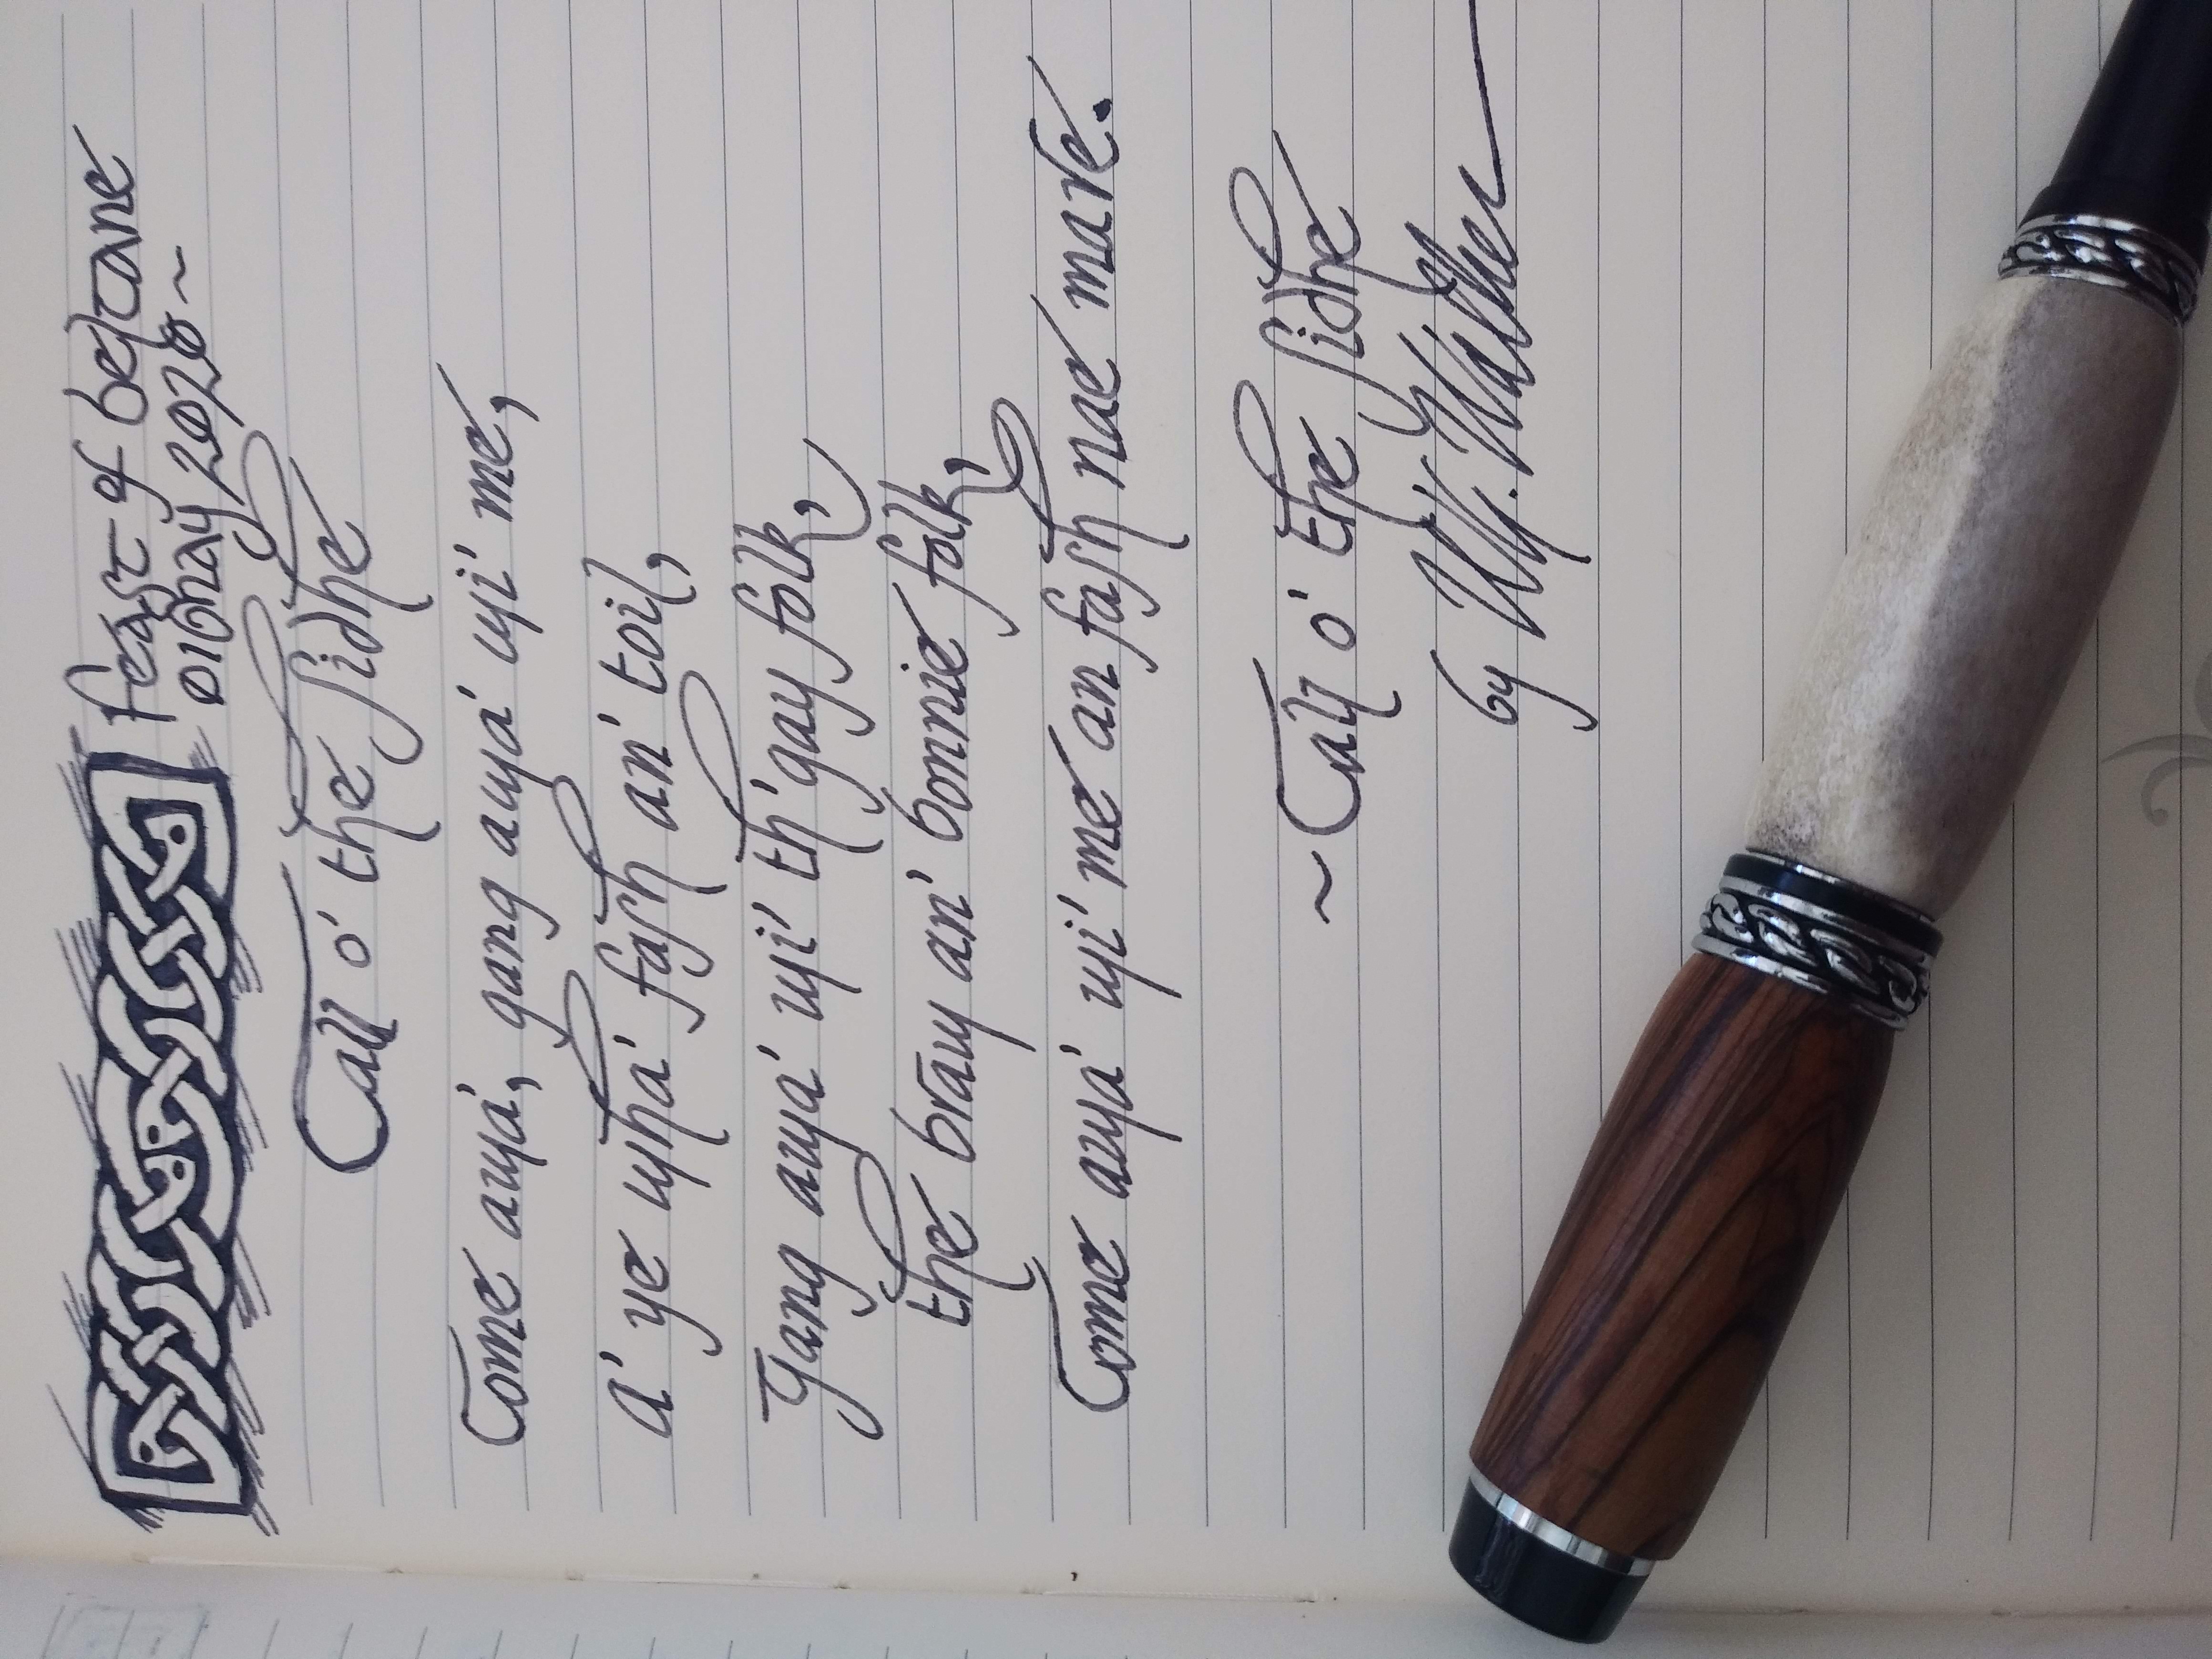 Feast of Beltane
01 May 2020~
Call o' the Sidhe
Come awa', gang awa' wi' me,
A' ye wha' fash an' toil,
Gang awa' wi' th' gay folk,
the braw an' bonnie folk,
Come awa' wi' me an fash nae mare.
~Call o' the Sidhe
by Walker